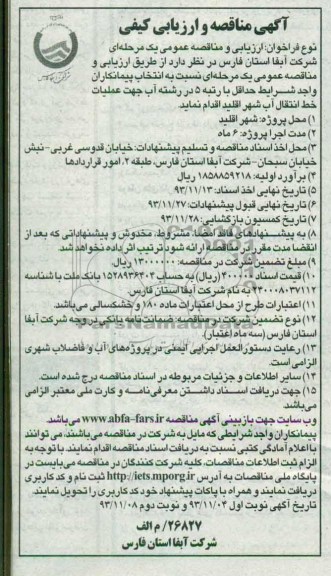 آگهی مناقصه و ارزیابی کیفی
نوع فراخوان: ارزیابی و مناقصه عمومی یک مرحله‌ای
شرکت آبفا استان فارس در نظر دارد از طریق ارزیابی و
مناقصه عمومی یک مرحله‌ای نسبت به انتخاب پیمانکاران
واجد شرایط حداقل با رتبه ۵ در رشته آب جهت عملیات
خط انتقال آب شهر اقلید اقدام نماید.
۱) محل پروژه: شهر اقلید
۲) مدت اجرا پروژه: ۶ ماه
۳) محل اخذ اسناد مناقصه و تسلیم پیشنهادات: خیابان قدوسی غربی - نبش
خیابان سبحان - شرکت آبفا استان فارس، طبقه ۲، امور قراردادها
۴) برآورد اولیه: ۱۸۵۸۸۵۹۲۱۸ ریال
۵) تاریخ نهایی اخذ اسناد: ۹۳/۱۱/۱۳
۶) تاریخ نهایی قبول پیشنهادات: ۹۳/۱۱/۲۷
۷) تاریخ کمسیون بازگشایی: ۹۳/۱۱/۲۸
۸) به پیشنهادهای فاقد امضا، مشروط، مخدوش و پیشنهاداتی که بعد از
انقضا مدت مقرر در مناقصه ارائه شود ترتیب اثر داده نخواهد شد.
۹) مبلغ تضمین شرکت در مناقصه: ۱۳۰۰۰۰۰۰۰ ریال
۱۰) قیمت اسناد ۴۰۰۰۰۰ (ریال) به حساب ۱۵۲۸۹۳۶۳۰۴ بانک ملت با شناسه
۲۳۰۰۰۸۰۳۷۱۱۲ به نام شرکت آبفا استان فارس
۱۱) اعتبارات طرح از محل اعتبارات ماده ۱۸۰ و خشکسالی می‌باشد.
۱۲) نوع تضمین شرکت در مناقصه: ضمانت نامه بانکی در وجه شرکت آبفا
استان فارس (سه ماه اعتبار).
۱۳) رعایت دستورالعمل اجرایی ایمنی در پروژه‌های آب و فاضلاب شهری
الزامی است.
۱۴) سایر اطلاعات و جزئیات مربوطه در اسناد مناقصه درج شده است.
۱۵) جهت دریافت اسناد داشتن معرفی‌نامه و کارت ملی معتبر الزامی
می‌باشد.
وب سایت جهت بازبینی آگهی مناقصه www.abfa-fars.ir می‌باشد.
پیمانکاران واجد شرایطی که مایل به شرکت در مناقصه می‌باشند، می توانند
با اعلام آمادگی کتبی نسبت به دریافت اسناد مناقصه اقدام نمایند. با توجه به
الزام ثبت اطلاعات مناقصات، کلیه شرکت کنندگان در مناقصه می‌بایست در
پایگاه ملی مناقصات به آدرس http://iets.mporg.ir ثبت نام و کد کاربری
دریافت نمایند و همراه با پاکات پیشنهاد خود کد کاربری را تحویل نمایند.
تاریخ آگهی نوبت اول ۹۳/۱۱/۰۴ و نوبت دوم ۹۳/۱۱/۰۸
۲۶۸۲۷/م الف
شرکت آبفا استان فارس